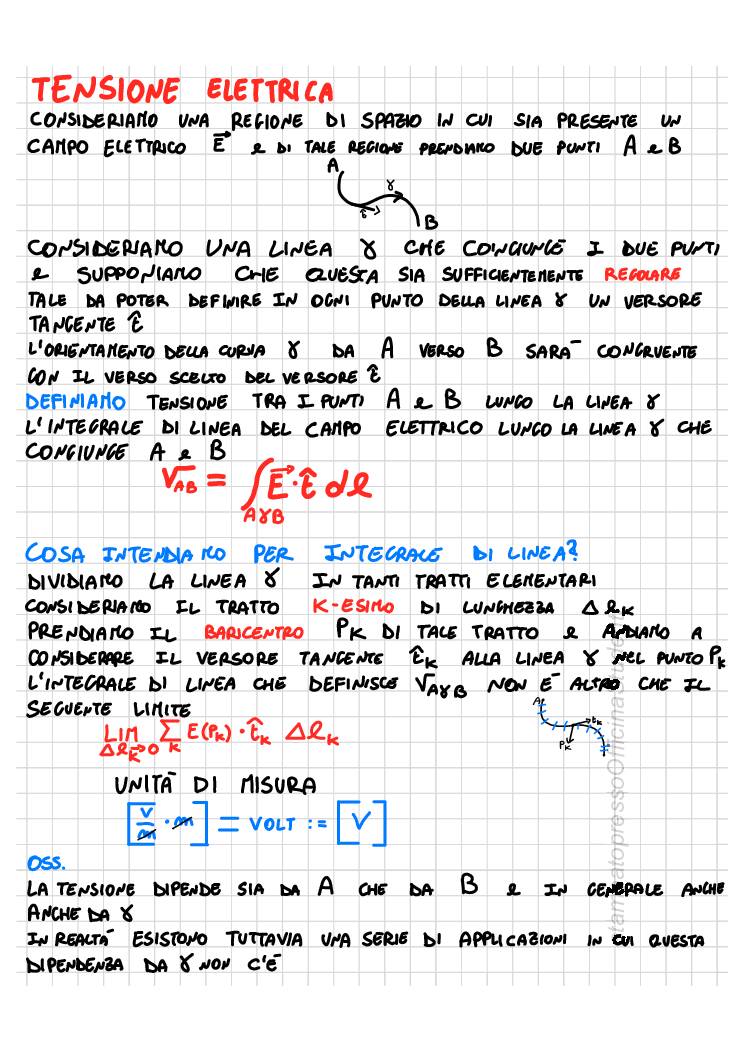 TENSIONE ELETTRICA
CONSIDERIAMO UNA REGIONE DI SPAZIO IN CUI SIA PRESENTE UN
CAMPO ELETTRICO E⃗ e DI TALE REGIONE PRENDIAMO DUE PUNTI A e B
A
γ
t̂
B
CONSIDERIAMO UNA LINEA γ CHE CONGIUNGE I DUE PUNTI
e SUPPONIAMO CHE QUESTA SIA SUFFICIENTEMENTE REGOLARE
TALE DA POTER DEFINIRE IN OGNI PUNTO DELLA LINEA γ UN VERSORE
TANGENTE t̂
L'ORIENTAMENTO DELLA CURVA γ DA A VERSO B SARA¯ CONGRUENTE
CON IL VERSO SCELTO DEL VERSORE t̂
DEFINIAMO TENSIONE TRA I PUNTI A e B LUNGO LA LINEA γ
L'INTEGRALE DI LINEA DEL CAMPO ELETTRICO LUNGO LA LINEA γ CHE
CONGIUNGE A e B
V_AB = ∫_AγB E⃗·t̂ dl
COSA INTENDIAMO PER INTEGRALE DI LINEA?
DIVIDIAMO LA LINEA γ IN TANTI TRATTI ELEMENTARI
CONSIDERIAMO IL TRATTO K-ESIMO DI LUNGHEZZA Δl_K
PRENDIAMO IL BARICENTRO P_K DI TALE TRATTO e ANDIAMO A
CONSIDERARE IL VERSORE TANGENTE t̂_K ALLA LINEA γ NEL PUNTO P_K
L'INTEGRALE DI LINEA CHE DEFINISCE V_AγB NON E¯ ALTRO CHE IL
SEGUENTE LIMITE
LIM_Δl_K→0 Σ_K E(P_K)·t̂_K Δl_K
A
t_K
P_K
UNITA¯ DI MISURA
[V/m · m] = VOLT := [V]
OSS.
LA TENSIONE DIPENDE SIA DA A CHE DA B e IN GENERALE ANCHE
ANCHE DA γ
IN REALTA¯ ESISTONO TUTTAVIA UNA SERIE DI APPLICAZIONI IN CUI QUESTA
DIPENDENZA DA γ NON C'E¯